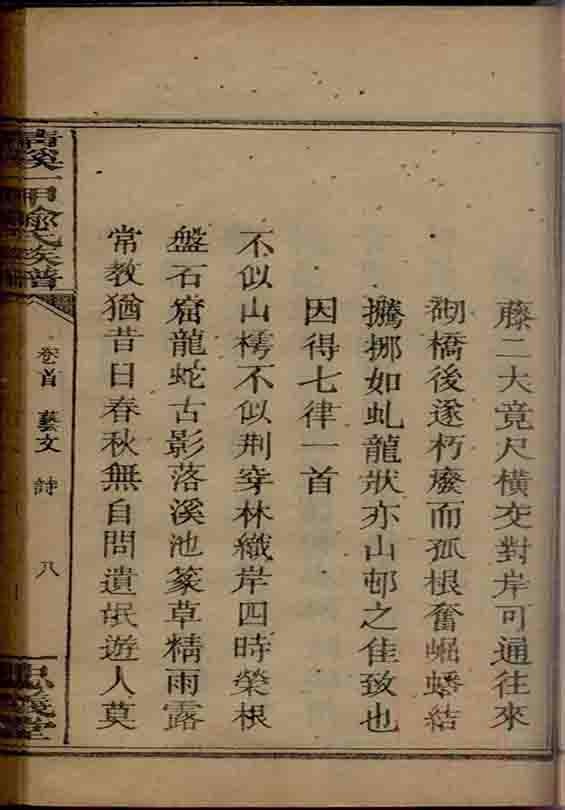 藤二大竟尺橫交對岸可通往來
㓖橋後遂朽癈而孤根奮崛蟠結
擨挪如虬龍狀亦山邨之佳致也
因得七律一首
不似山樗不似荆穿林織岸四時榮根
盤石窟龍蛇古影落溪池篆草精雨露
常教猶昔日春秋無自問遺氓遊人莫
卷首 藝文 詩 八
一甲 氏族譜